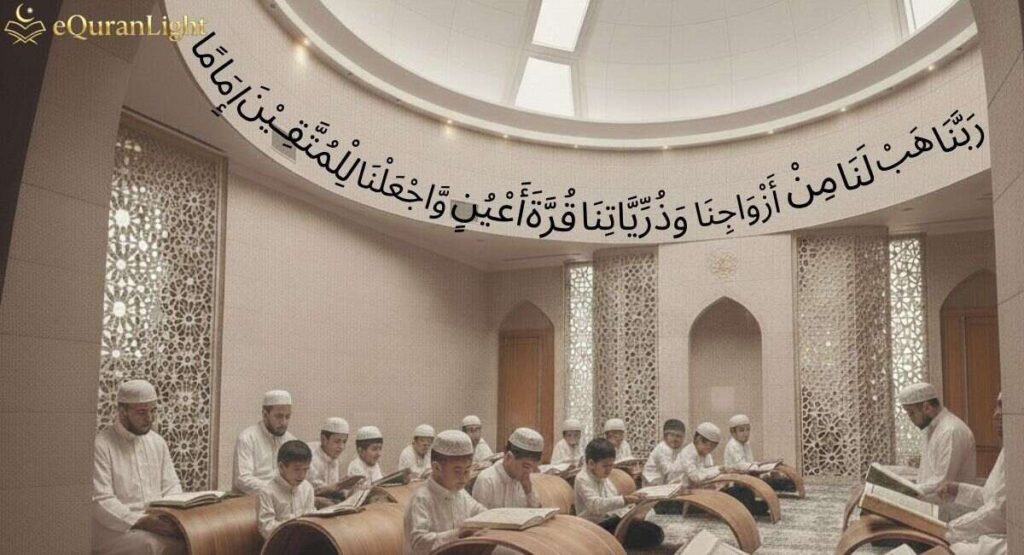 eQuranLight
رَبَّنَا هَبْ لَنَا مِنْ أَزْوَاجِنَا وَذُرِّيَّاتِنَا قُرَّةَ أَعْيُنٍ وَّاجْعَلْنَا لِلْمُتَّقِيْنَ إِمَامًا